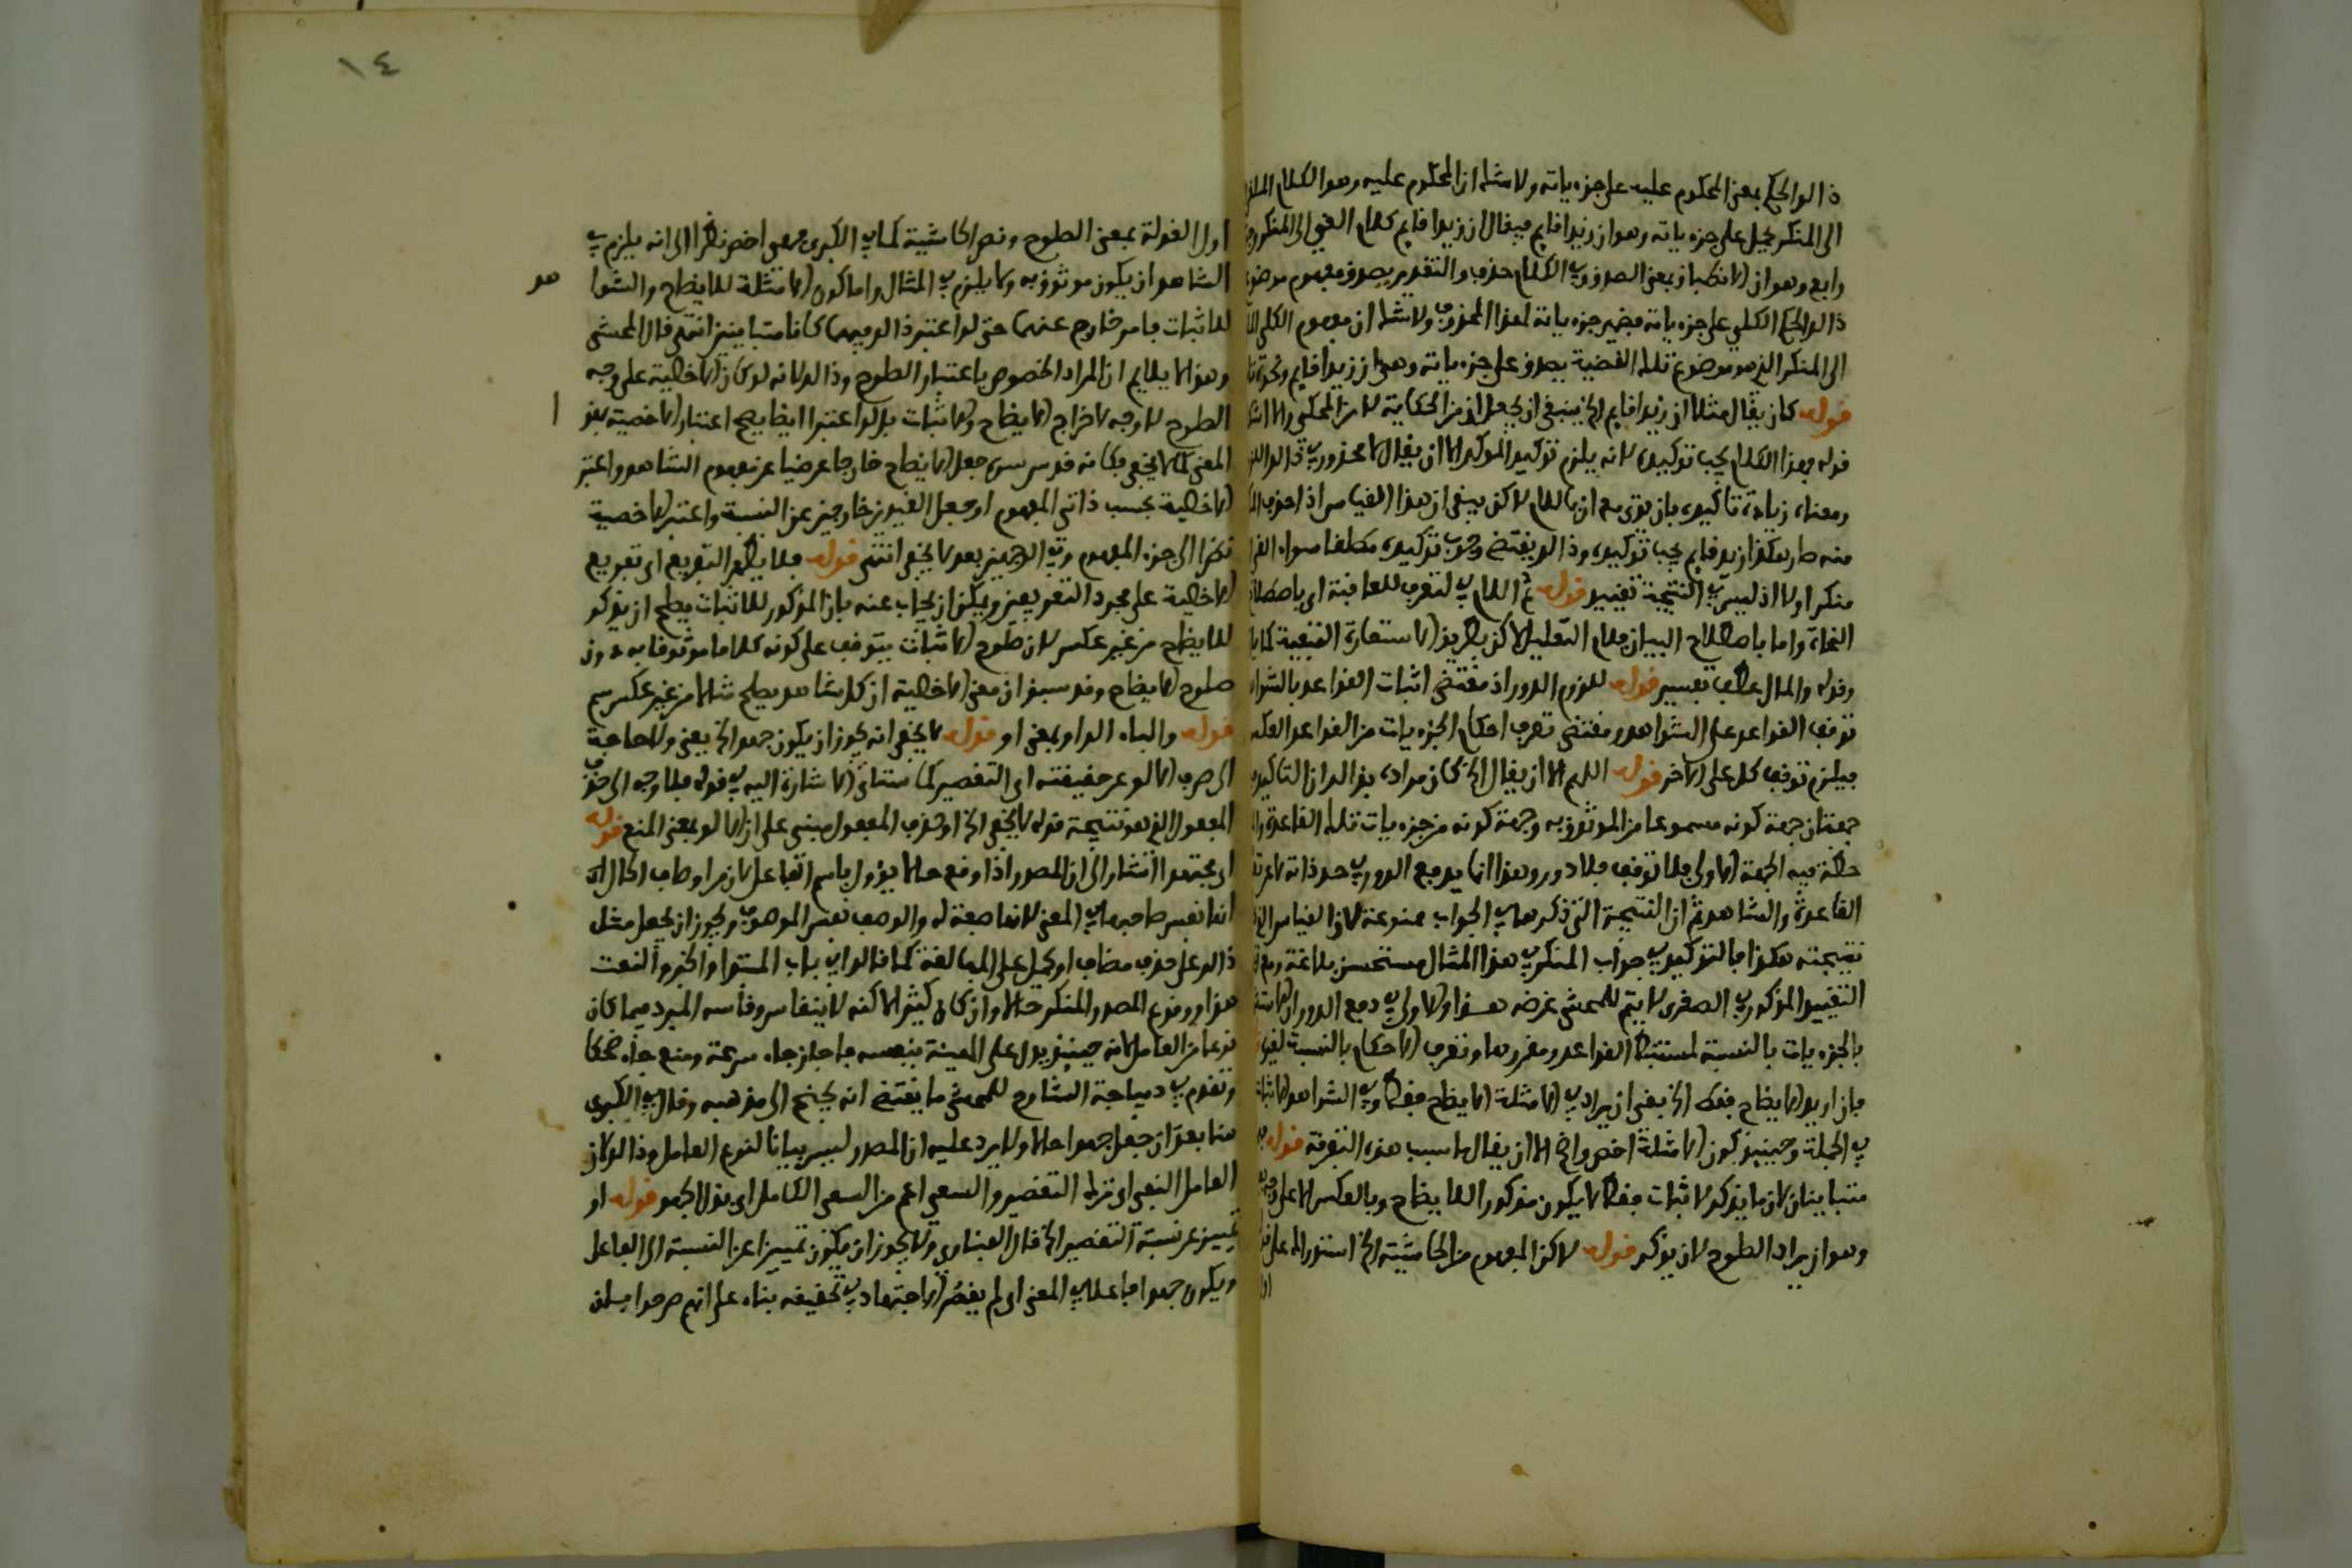 ذالو الحكم بمعنى المحكوم عليه على جزءياته ولا شك ان المحكوم عليه وهو الكلام
الى المنكر يحمل على جزءياته وهو ان زيدا قايم فيقال ان زيدا قايم كلام القي الى المنكر
رابع وهو ان الانطباق بمعنى الصدق وفي الكلام حذف والتقدير يصدق مفهوم موضوع
ذالو الحكم الكلي على جزءياته فضمير جزءياته لهذا المحذوف ولا شك ان مفهوم الكلي
الى المنكر الذي هو موضوع تلك القضية يصدق على جزءياته وهي ان زيدا قايم
قوله كان يقال مثلا ان زيدا قايم الخ ينبغي ان يجعل ان من الحكاية لا من المحكي
قوله فهذا الكلام يجب توكيده لانه يلزم توكيد الموكد الا ان يقال لا محذور في ذالو
ومعناه زيادة تاكيده بان يوتى مع ان باللام لاكن يبقى ان هذا القياس اذا حذف
منه صار هكذا زيد قايم يجب توكيده وذالو يقتضي وجوب توكيده مطلقا سواء
منكرا اولا اذ ليس في النتيجة تقييد قوله ثم اللام في لتعرف للعاقبة اي باصطلاح
النحاة واما باصطلاح البيان فلام التعليل لاكن بطريق الاستعارة التبعية
وقوله والمال عطف تفسير قوله للزوم الدور اذ مقتضى اثبات القواعد بالشواهد
توقف القواعد على الشواهد ومقتضى تعرف احكام الجزءيات من القواعد العكس
فيلزم توقف كل على الاخر قوله اللهم الا ان يقال الخ كان مراده بذالو ان التاكيد
جهتان جهة كونه مسموعا من الموثوق به وجهة كونه من جزءيات تلك القاعدة
حظت فيه الجهة الاولى فلا توقف فلا دور وهذا انما يدفع الدور في حد ذاته
القاعدة والشاهد ثم ان النتيجة التي ذكرها في الجواب ممنوعة لان القياس
نتيجته هكذا فالتوكيد في جواب المنكر في هذا المثال مستحسن بلاغة
التقييد المذكور في الصغرى لا يتم للمحشي غرضه هذا والاولى في دفع الدور ان
بالجزءيات بالنسبة لمستنبط القواعد ومقررها وتعرف الاحكام بالنسبة
فان اريد الايضاح فقط الخ يعني ان يراد في الامثلة الايضاح فقط وفي الشواهد
في الجملة وحينيذ يكون الامثلة اخص واعم الا ان يقال ما سبب هذه التفرقة قوله
متباينان لان ما يذكر لاثبات فقط لا يكون مذكورا للايضاح وبالعكس
وهو ان يراد الصلوح لان يذكر قوله لاكن المفهوم من الحاشية الخ استدراك على
١٤
اول القولة بمعنى الصلوح ونص الحاشية كما في الكبرى فهي اخص نظرا الى انه يلزم في
الشاهد ان يكون موثوق به ولا يلزم في المثال واما كون الامثلة للايضاح والشوا
هد
للاثبات فامر خارج عنهما حتى لو اعتبر ذالو فيهما كانا متباينين انتهى قال المحشي
وهذا لا يلايم ان المراد الخصوص باعتبار الصلوح وذالو لانه لو كان على وجه
الصلوح لا وجه لاخراج الايضاح والاثبات بل لو اعتبرا ايضا يصح اعتبار الاخصية
المعنى كما لا يخفى فكانه قدس سره جعل الايضاح خارجا عرضيا عن مفهوم الشاهد واعتبر
بحسب ذاتي المفهوم او جعل القيدين خارجين عن النسبة واعتبر الاخصية
نظرا الى جزء المفهوم وفي الوجهين بعد لا يخفى انتهى قوله فلا يظهر التفريع اي تفريع
على مجرد التعريفين ويمكن ان يجاب عنه بان المذكور للاثبات يصلح ان يذكر
للايضاح من غير عكس لان صلوح الاثبات يتوقف على كونه كلاما موثوقا به دون
صلوح الايضاح وقد سبق ان معنى ان كل شاهد يصلح مثالا من غير عكس
قوله والباء الواو بمعنى او قوله لا يخفى انه يجوز ان يكون جهدا الخ يعني ولا حاجة
الى صرف الالو عن حقيقته اي التقصير كما ستاتي الاشارة اليه في قوله فلا وجه الى حذف
المفعول الذي هو نتيجة قوله لا يخفى الخ او حذف المفعول مبني على ان الالو بمعنى المنع قوله
اي مجتهدا اشار الى ان المصدر اذا وقع حالا يؤول باسم الفاعل لان مراد وصاف الحال
انها نفس صاحبها في المعنى لانها صفة له والوصف نفس الموصوف ويجوز ان يجعل مثل
ذالو على حذف مضاف او يحمل على المبالغة كما قالوا في باب المبتدا والخبر والنعت
هذا ووقوع المصدر المنكر حالا وان كان كثيرا لاكنه لا ينقاس وقاسه المبرد فيما كان
نوعا من العامل لانه حينيذ يدل على الهيئة بنفسه فاجاز جاء سرعة ومنع جاء ضحكا
وتقدم في ديباجة الشارح للمحشي ما يقتضي انه يجنح الى مذهبه وقال في الكبرى
هنا بعد ان جعل جهدا حالا ولا يرد عليه ان المصدر ليس بيانا لنوع العامل وذالو لان
العامل النفي اي ترك التقصير والسعي اعم من السعي الكامل اي بذل الجهد قوله او
تمييز عن نسبة التقصير الخ قال الفناري ولا يجوز ان يكون تمييزا عن النسبة الى الفاعل
ويكون جهدا فاعلا في المعنى اي لم يقصر الاجتهاد في تحقيقه بناء على انهم صرحوا